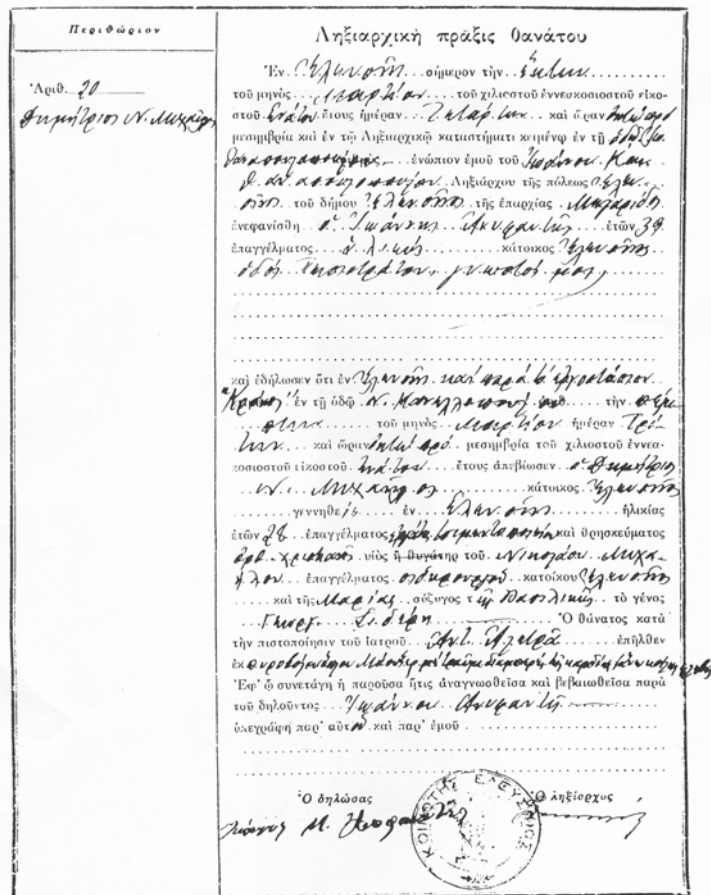 Περιθώριον
Ἀριθ. 20
Δημήτριος Ν. Μιχαήλος
Ληξιαρχικὴ πρᾶξις θανάτου
Ἐν Ἐλευσῖνι σήμερον τὴν ἕκτην
τοῦ μηνὸς Μαρτίου τοῦ χιλιοστοῦ ἐννεακοσιοστοῦ εἰκο-
στοῦ ἐνάτου ἔτους ἡμέραν Τετάρτην καὶ ὥραν ὀκτὼ πρὸ
μεσημβρία καὶ ἐν τῷ Ληξιαρχικῷ καταστήματι κειμένῳ ἐν τῇ ὁδῷ
ἐνώπιον ἐμοῦ τοῦ Ἰωάννου Παπ.
Ληξιάρχου τῆς πόλεως Ἐλευ-
σῖνος τοῦ δήμου Ἐλευσῖνος τῆς ἐπαρχίας Μεγαρίδος
ἐνεφανίσθη ὁ Ἰωάννης Ἀνυφαντῆς ἐτῶν 39
ἐπαγγέλματος κάτοικος Ἐλευσῖνος
ὁδὸς Πεισιστράτου, γνωστός μοι,
καὶ ἐδήλωσεν ὅτι ἐν Ἐλευσῖνι καὶ παρὰ τὸ ἐργοστάσιον
"Κρόνος" ἐν τῇ ὁδῷ Ν. Κανελλοπούλου ἀριθ. τὴν πέμ-
πτην τοῦ μηνὸς Μαρτίου ἡμέραν Τρί-
την καὶ ὥραν ὀκτὼ πρὸ μεσημβρία τοῦ χιλιοστοῦ ἐννεα-
κοσιοστοῦ εἰκοστοῦ ἐνάτου ἔτους ἀπεβίωσεν ὁ Δημήτριος
Ν. Μιχαήλος κάτοικος Ἐλευσῖνος
γεννηθείς ἐν Ἐλευσῖνι ἡλικίας
ἐτῶν 28 ἐπαγγέλματος καὶ θρησκεύματος
ὀρθ. χριστιανὸς υἱὸς ἢ θυγάτηρ τοῦ Νικολάου Μιχα-
ήλου ἐπαγγέλματος σιδηρουργοῦ κατοίκου Ἐλευσῖνος
καὶ τῆς Μαρίας σύζυγος τῆς Βασιλικῆς τὸ γένος
Γεωργ. Σιδέρη Ὁ θάνατος κατὰ
τὴν πιστοποίησιν τοῦ ἰατροῦ Ἀντ. ἐπῆλθεν
ἐκ πυροβόλου ὅπλου
Ἐφ' ᾧ συνετάγη ἡ παροῦσα ἥτις ἀναγνωσθεῖσα καὶ βεβαιωθεῖσα παρὰ
τοῦ δηλοῦντος Ἰωάννου Ἀνυφαντῆ
ὑπεγράφη παρ' αὐτοῦ καὶ παρ' ἐμοῦ
Ὁ δηλώσας
Ὁ ληξίαρχος
ΚΟΙΝΟΤΗΣ ΕΛΕΥΣΙΝΟΣ